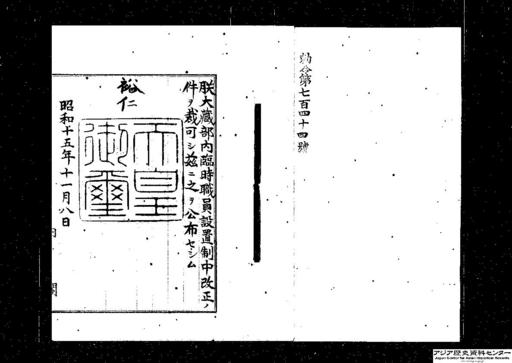 勅令第七百四十四號
朕大藏部內臨時職員設置制中改正ノ
件ヲ裁可シ茲ニ之ヲ公布セシム
裕仁
天皇
御璽
昭和十五年十一月八日
内閣
アジア歴史資料センター
Japan Center for Asian Historical Records